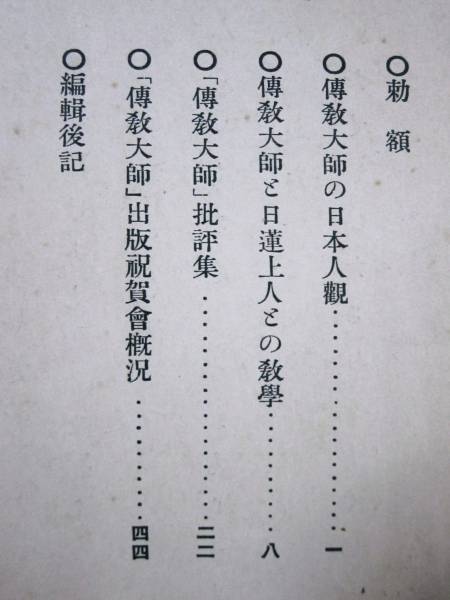 〇勅額
〇傳敎大師の日本人觀……………………一
〇傳敎大師と日蓮上人との敎學…………八
〇「傳敎大師」批評集……………………二二
〇「傳敎大師」出版祝賀會槪況…………四四
〇編輯後記